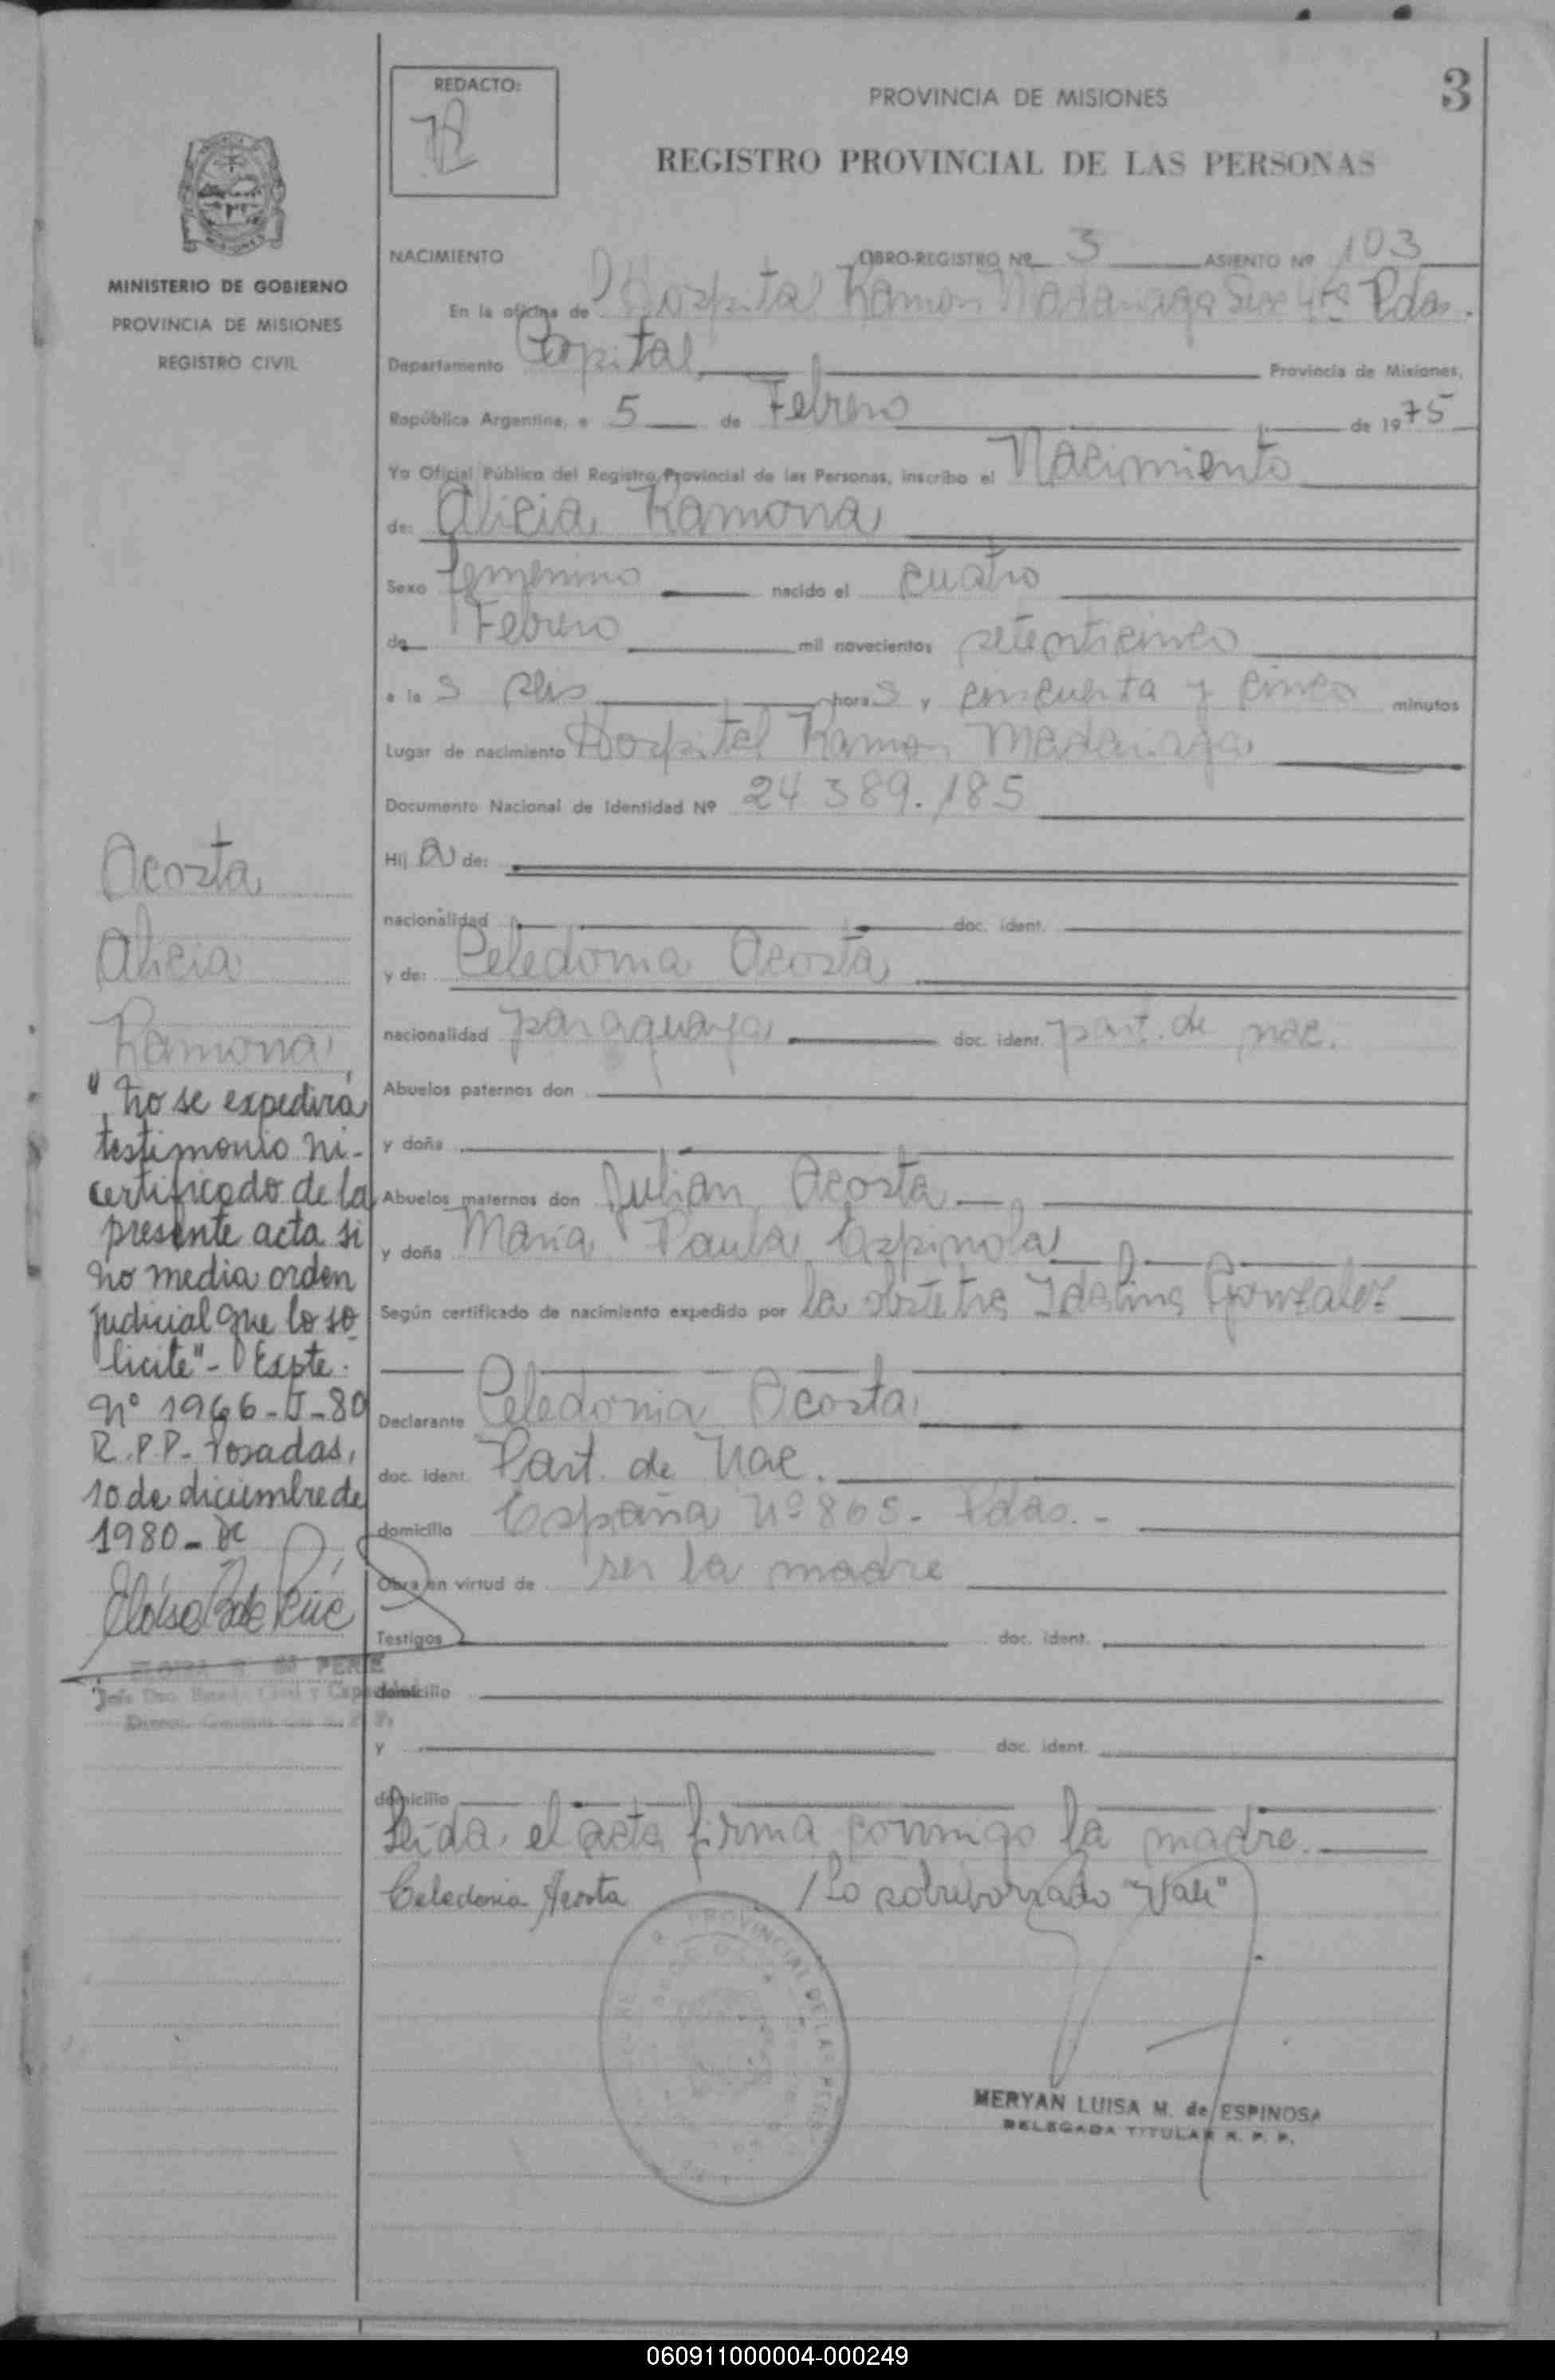 REDACTO:
PROVINCIA DE MISIONES
3
REGISTRO PROVINCIAL DE LAS PERSONAS
MINISTERIO DE GOBIERNO
PROVINCIA DE MISIONES
REGISTRO CIVIL
NACIMIENTO LIBRO-REGISTRO Nº 3 ASIENTO Nº 103
En la oficina de Hospital Ramon Madariaga Secc 4ta Pdas.
Departamento Capital Provincia de Misiones,
República Argentina, a 5 de Febrero de 1975
Yo Oficial Público del Registro Provincial de las Personas, inscribo el Nacimiento
de: Alicia Ramona
Sexo femenino nacido el cuatro
de Febrero mil novecientos setenticinco
a la s seis hora s y cincuenta y cinco minutos
Lugar de nacimiento Hospital Ramon Madariaga
Documento Nacional de Identidad Nº 24 389.185
Hij a de:
nacionalidad doc. ident.
y de: Celedonia Acosta
nacionalidad paraguaya doc. ident. part. de nac.
Abuelos paternos don
y doña
Abuelos maternos don Julian Acosta
y doña Maria Paula Espinola
Según certificado de nacimiento expedido por la obstetra Idalina Gonzalez
Declarante Celedonia Acosta
doc. ident. Part. de Nac.
domicilio España Nº 865. Pdas. -
Obra en virtud de ser la madre
Testigos doc. ident.
domicilio
y doc. ident.
domicilio
Leida el acta firma conmigo la madre.
Celedonia Acosta / Lo sobreborrado "Vale"
MERYAN LUISA M. de ESPINOSA
DELEGADA TITULAR R. P. P.
Acosta
Alicia
Ramona
" No se expedirá
testimonio ni-
certificado de la
presente acta si
no media orden
judicial que lo so
licite"- Expte.
Nº 1966-J-80
R.P.P- Posadas,
10 de diciembre de
1980-
060911000004-000249